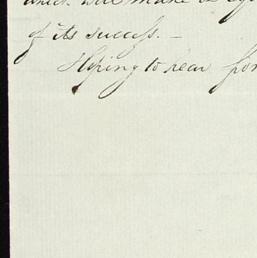 which will make
of its success. —
Hoping to hear from